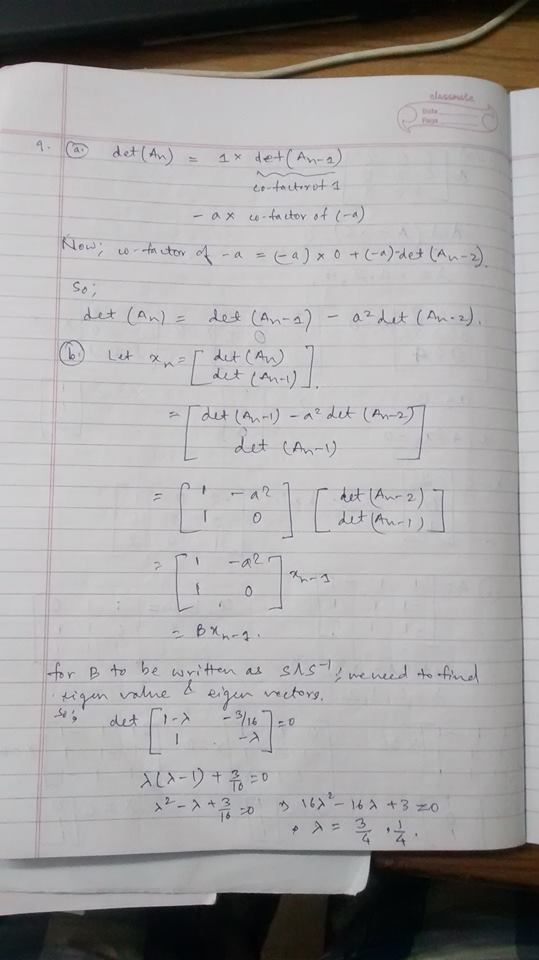 classmate
Date
Page
9. (a.) det(An) = 1 × det(An-1)
co-factor of 1
- a × co-factor of (-a)
Now; co-factor of -a = (-a) × 0 + (-a)·det(An-2).
So;
det (An) = det (An-1) - a² det (An-2).
(b.) Let xn = [ det(An)
det(An-1) ].
= [ det(An-1) - a² det (An-2)
det (An-1) ]
= [ 1 -a²
1 0 ] [ det(An-2)
det(An-1) ]
= [ 1 -a²
1 0 ] xn-1
= Bxn-1.
for B to be written as SΛS⁻¹; we need to find
eigen value & eigen vectors.
So;
det [ 1-λ -3/16
1 -λ ] = 0
λ(λ-1) + 3/16 = 0
λ² - λ + 3/16 = 0 ⇒ 16λ² - 16λ + 3 = 0
λ = 3/4, 1/4.